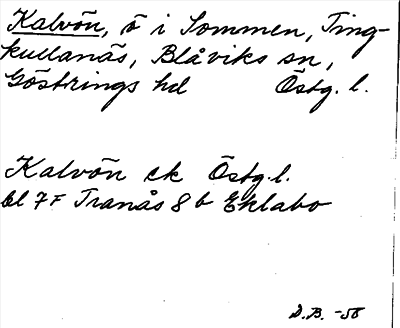 Kalvön, ö i Sommen, Ting-
kullanäs, Blåviks sn,
Göstrings hd Östg. l.
Kalvön ek Östg. l.
bl 7F Tranås 8 b Eklabo
D.B. -58